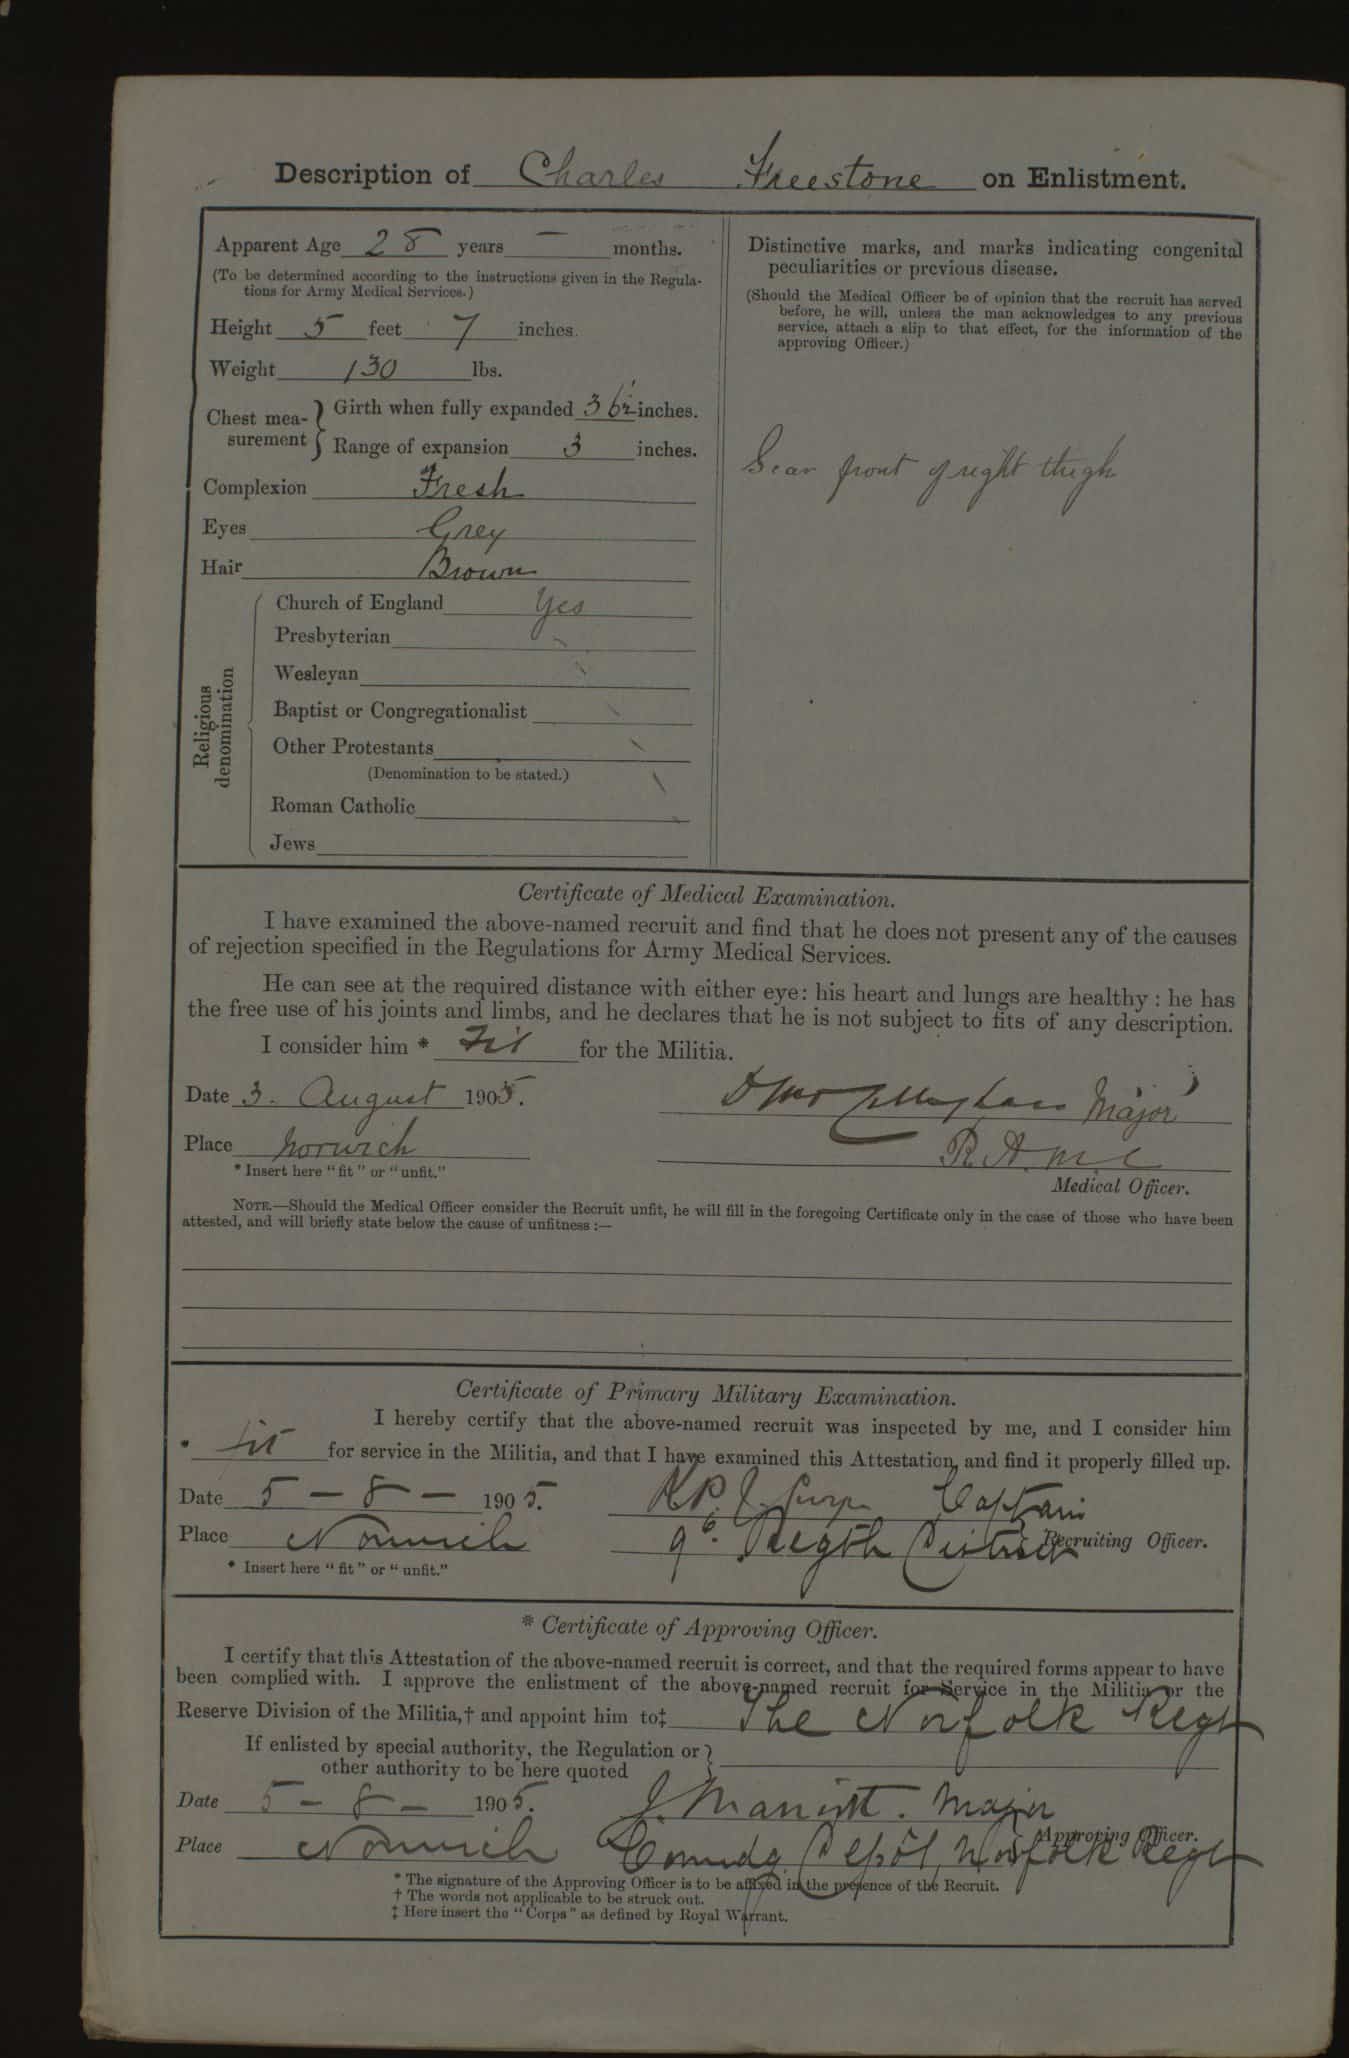 Description of Charles Freestone on Enlistment.
Apparent Age 28 years — months.
(To be determined according to the instructions given in the Regula-
tions for Army Medical Services.)
Height 5 feet 7 inches.
Weight 130 lbs.
Chest mea-
surement
Girth when fully expanded 36½ inches.
Range of expansion 3 inches.
Complexion Fresh
Eyes Grey
Hair Brown
Religious
denomination
Church of England Yes
Presbyterian
Wesleyan
Baptist or Congregationalist
Other Protestants
(Denomination to be stated.)
Roman Catholic
Jews
Distinctive marks, and marks indicating congenital
peculiarities or previous disease.
(Should the Medical Officer be of opinion that the recruit has served
before, he will, unless the man acknowledges to any previous
service, attach a slip to that effect, for the information of the
approving Officer.)
Scar front of right thigh
Certificate of Medical Examination.
I have examined the above-named recruit and find that he does not present any of the causes
of rejection specified in the Regulations for Army Medical Services.
He can see at the required distance with either eye: his heart and lungs are healthy: he has
the free use of his joints and limbs, and he declares that he is not subject to fits of any description.
I consider him * Fit for the Militia.
Date 3. August 1905.
Major
Place Norwich
R.A.M.C
* Insert here "fit" or "unfit."
Medical Officer.
NOTE.—Should the Medical Officer consider the Recruit unfit, he will fill in the foregoing Certificate only in the case of those who have been
attested, and will briefly state below the cause of unfitness :—
Certificate of Primary Military Examination.
I hereby certify that the above-named recruit was inspected by me, and I consider him
* fit for service in the Militia, and that I have examined this Attestation, and find it properly filled up.
Date 5 - 8 - 1905.
Captain
Place Norwich
9th Regtl District Recruiting Officer.
* Insert here "fit" or "unfit."
* Certificate of Approving Officer.
I certify that this Attestation of the above-named recruit is correct, and that the required forms appear to have
been complied with. I approve the enlistment of the above-named recruit for Service in the Militia or the
Reserve Division of the Militia,† and appoint him to‡ The Norfolk Regt
If enlisted by special authority, the Regulation or
other authority to be here quoted
Date 5 - 8 - 1905.
J. Marriott. Major
Approving Officer.
Place Norwich
Commdg Depôt, Norfolk Regt
* The signature of the Approving Officer is to be affixed in the presence of the Recruit.
† The words not applicable to be struck out.
‡ Here insert the "Corps" as defined by Royal Warrant.